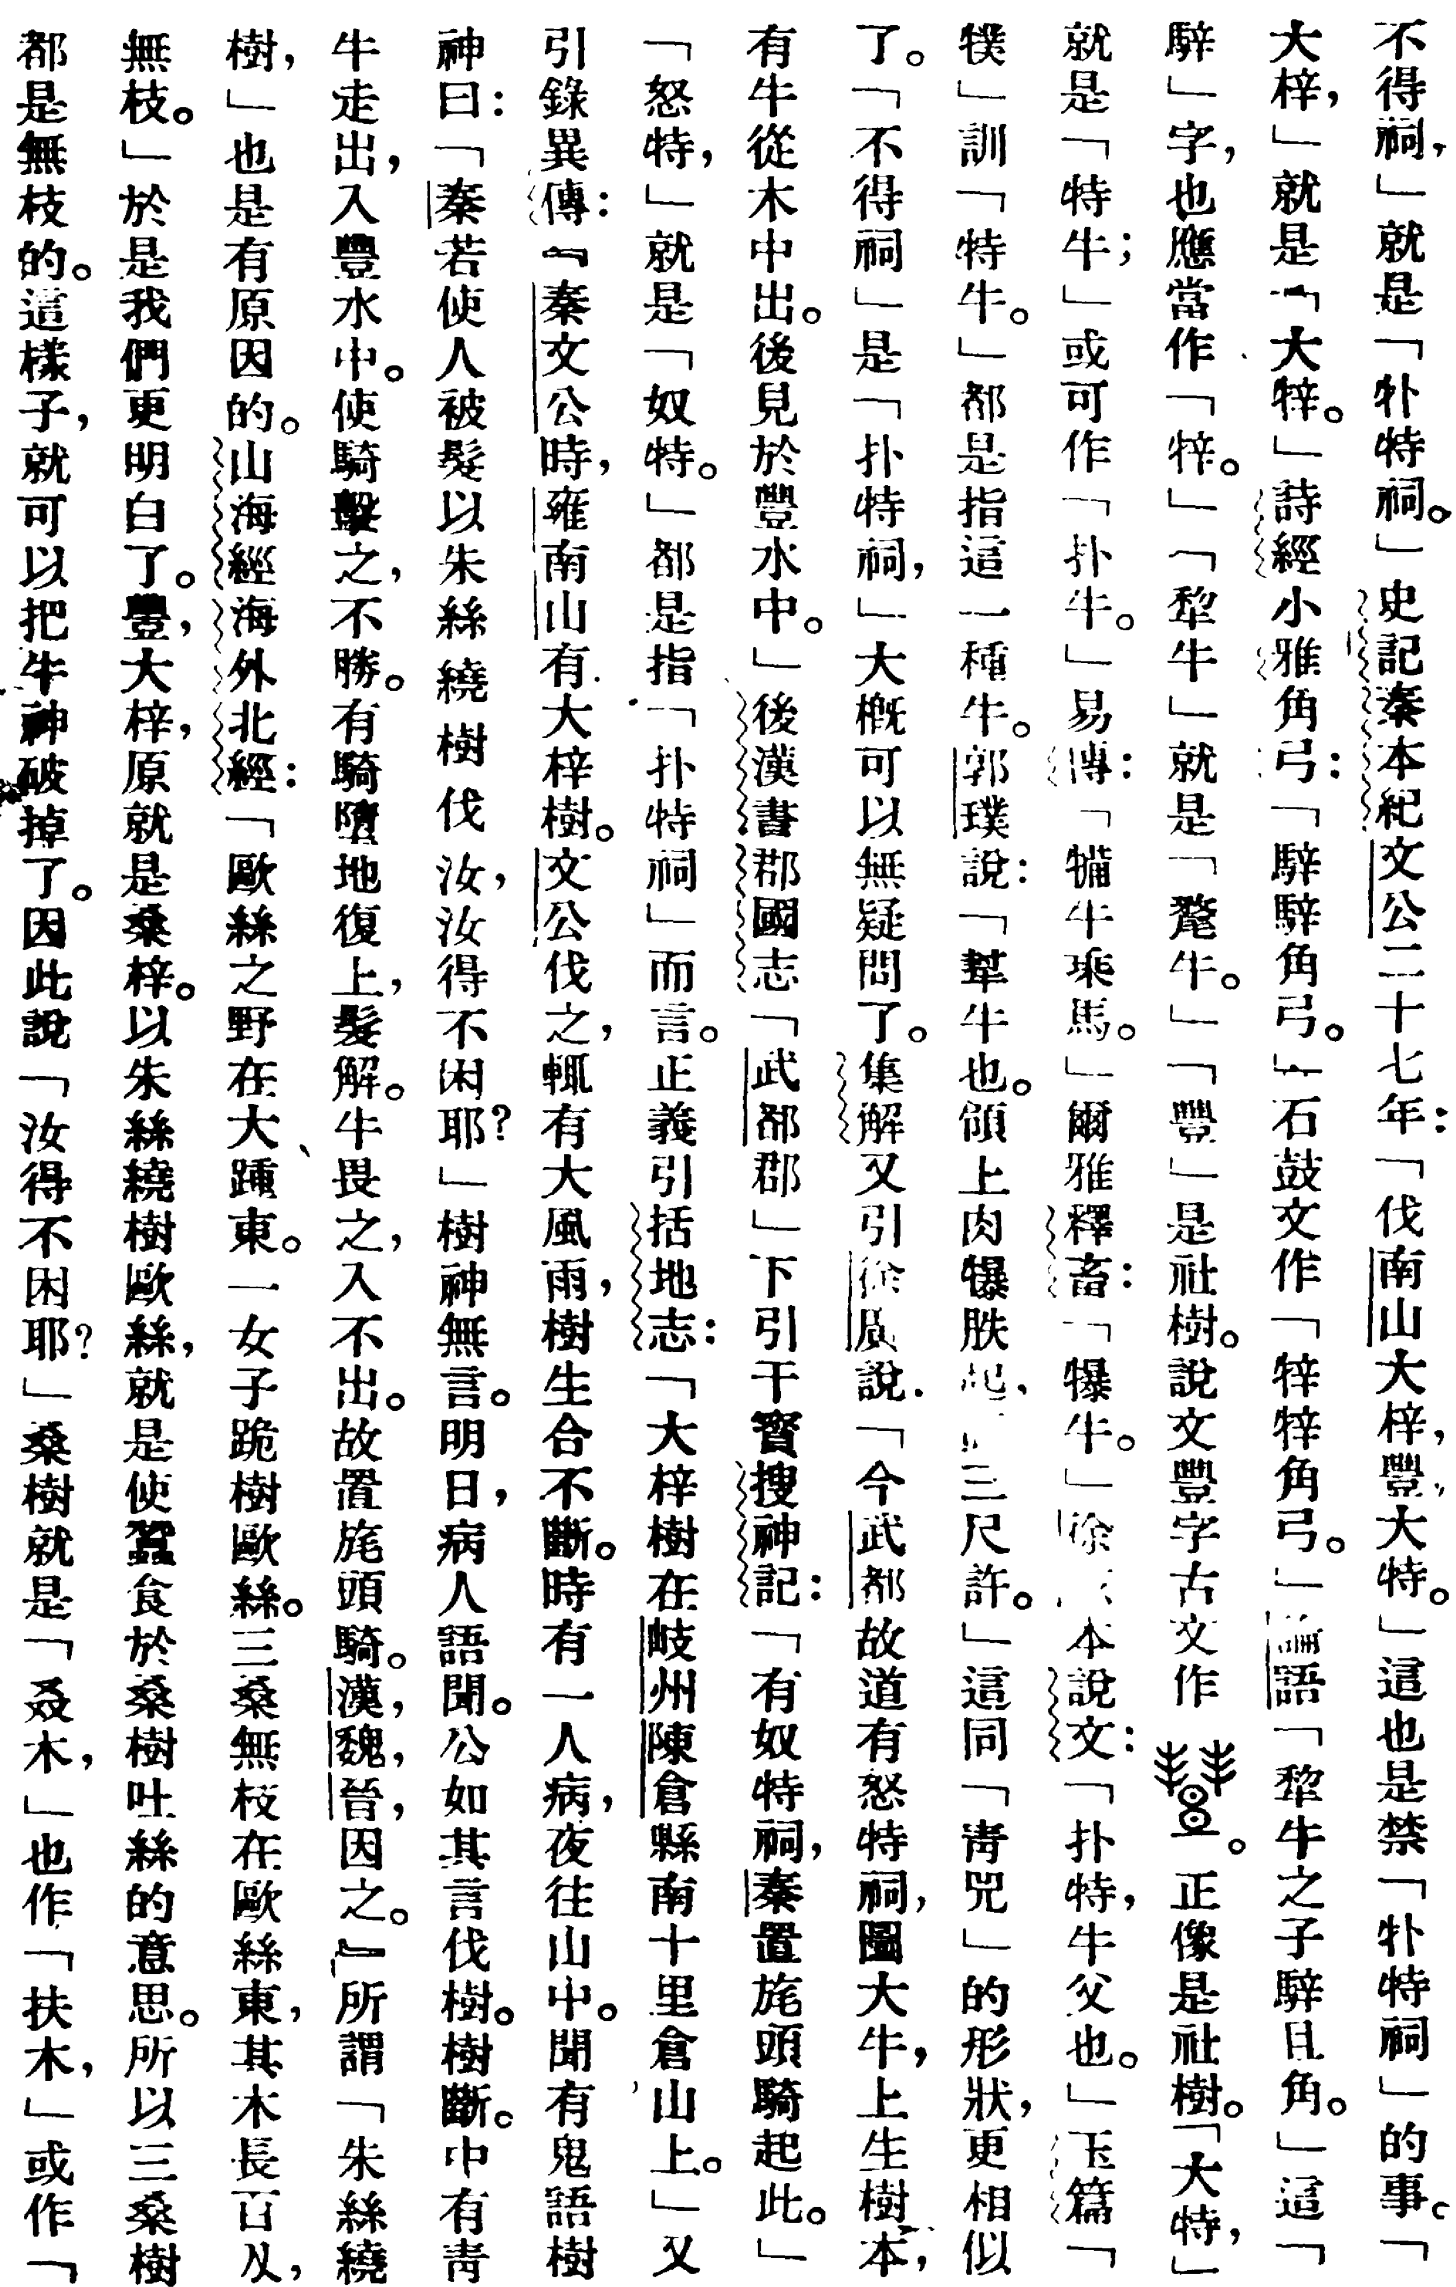 不得祠，」就是「牞特祠。」史記秦本紀文公二十七年：「伐南山大梓，豐，大特。」這也是禁「牞特祠」的事。「
大梓，」就是「大牸。」詩經小雅角弓：「騂騂角弓。」石鼓文作「牸牸角弓。」論語「犂牛之子騂且角。」這「
騂」字，也應當作「牸。」「犂牛」就是「氂牛。」「豐」是社樹。說文豐字古文作。正像是社樹。「大特，」
就是「特牛；」或可作「扑牛。」易傳：「犕牛乘馬。」爾雅釋畜：「犦牛。」徐本說文：「扑特，牛父也。」玉篇「
犑」訓「特牛。」都是指這一種牛。郭璞說：「犎牛也。領上肉犦胅起，三尺許。」這同「靑兕」的形狀，更相似
了。「不得祠」是「扑特祠，」大槪可以無疑問了。集解又引徐廣說「今武都故道有怒特祠，圖大牛，上生樹本，
有牛從木中出。後見於豐水中。」後漢書郡國志「武都郡」下引干寶搜神記：「有奴特祠，秦置旄頭騎起此。」
「怒特，」就是「奴特。」都是指「扑特祠」而言。正義引括地志：「大梓樹在岐州陳倉縣南十里倉山上。」又
引錄異傳：『秦文公時，雍南山有大梓樹。文公伐之，輒有大風雨，樹生合不斷。時有一人病，夜往山中。聞有鬼語樹
神曰：「秦若使人被髮以朱絲繞樹伐汝，汝得不困耶？」樹神無言。明日，病人語聞。公如其言伐樹。樹斷。中有靑
牛走出，入豐水中。使騎擊之，不勝。有騎墮地復上，髮解。牛畏之，入不出。故置旄頭騎。漢，魏，晉，因之。』所謂「朱絲繞
樹，」也是有原因的。山海經海外北經：「歐絲之野在大踵東。一女子跪樹歐絲。三桑無枝在歐絲東，其木長百仞，
無枝。」於是我們更明白了。豐，大梓，原就是桑梓。以朱絲繞樹歐絲，就是使蠶食於桑樹吐絲的意思。所以三桑樹
都是無枝的。這樣子，就可以把牛神破掉了。因此說「汝得不困耶？」桑樹就是「叒木，」也作「扶木，」或作「